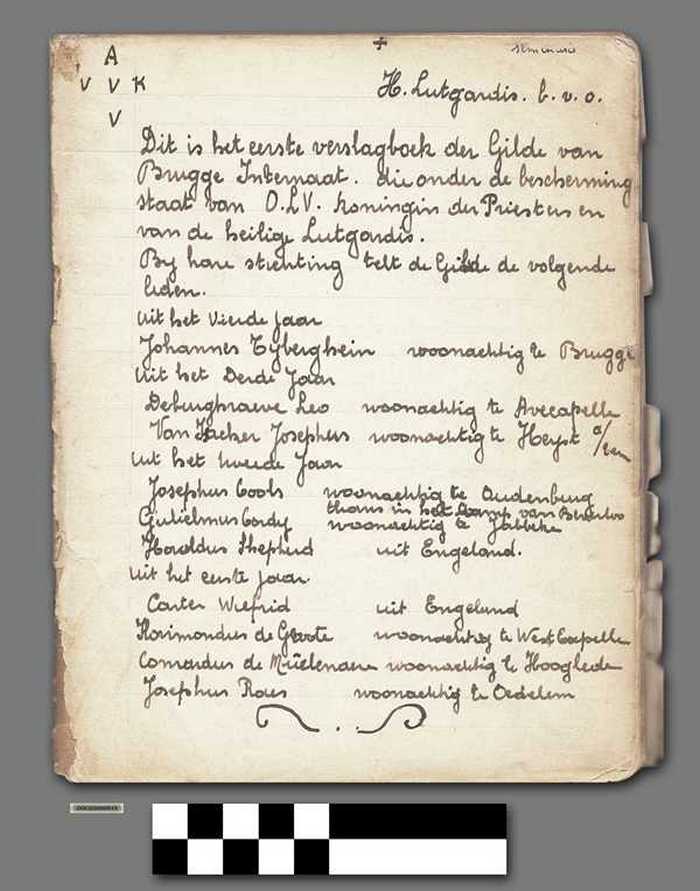 A
V V K
V
+
seminarie
H. Lutgardis. b. v. o.
Dit is het eerste verslagboek der Gilde van
Brugge Internaat. die onder de bescherming
staat van O.L.V. Koningin der Priesters en
van de heilige Lutgardis.
By hare stichting telt de Gilde de volgende
leden.
Uit het Vierde Jaar
Johannes Tyberghein woonachtig te Brugge
Uit het Derde Jaar
Deburghraeve Leo woonachtig te Avecapelle
Van Hecker Josephus woonachtig te Heyst o/
Uit het tweede Jaar
Josephus Cools woonachtig te Oudenburg
thans in het Kamp van Beverloo
Gulielmus Cordy woonachtig te Jabbeke
Haroldus Shepherd uit Engeland.
Uit het eerste jaar.
Carter Wilfrid uit Engeland
Florimondus de Groote woonachtig te West Capelle
Conrardus de Muelenaere woonachtig te Hooglede
Josephus Roels woonachtig te Oedelem